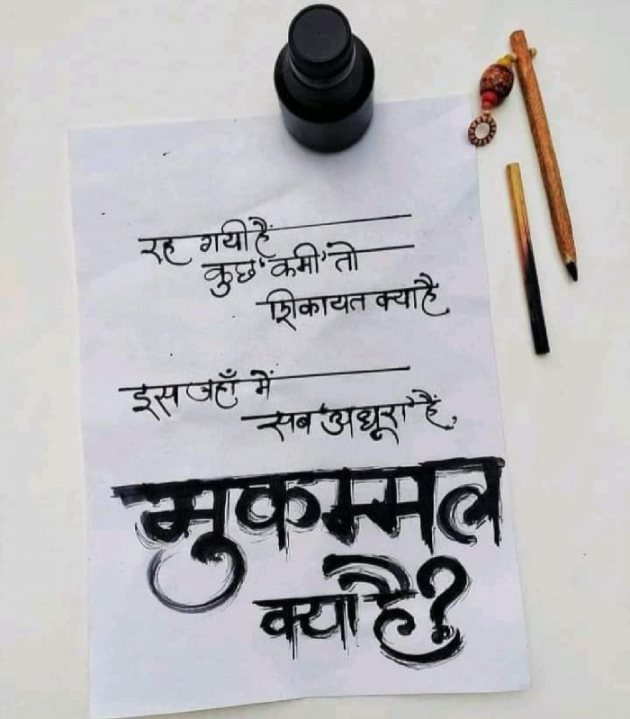 रह गयी है
कुछ 'कमी' तो
शिकायत क्या है,
इस जहाँ में
सब 'अधूरा' है,
मुकम्मल
क्या है?